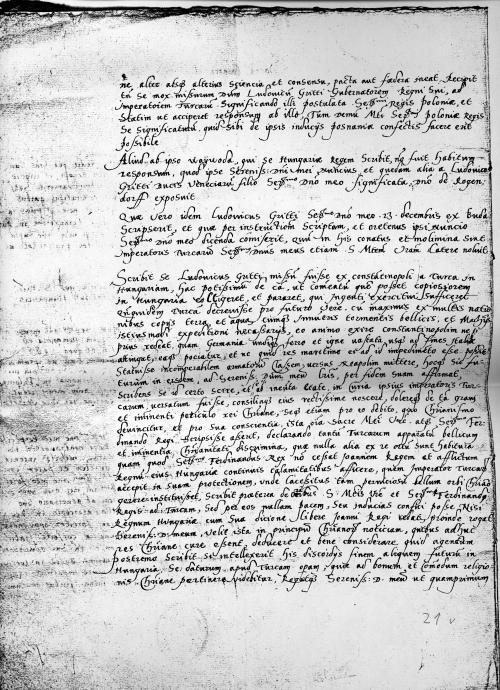 ne, alter absq3 alterius sciencia et consensu, pacta aut fœdera ineat, Recipit
in se mox missurum Dnm Ludovicu Gritti Gubernatorem Regni Sui, ad
Imperatorem Turcaru Significando illi postulata Sermi Regis poloniæ, et
statim ut acciperet responsum ab illo, Tum demu Mti Sermi poloniæ Regis
Se significaturu, quid sibi de ipsis inducijs posnaniæ confectis facere erit
possibile
Aliud ab ipso voyvoda, qui se Hungariæ Regem Scribit, no fuit habitum
responsum, quod ipse Sereniss: Dni mei nuncius, et quedam alia a Ludovico
Gritti Ducis Veneciaru filio Sermo Dno meo significata, Dno de Rogen
dorff exposuit
Quæ vero idem Ludovicus Gritti Sermo Dno meo 23 decembris ex Buda
Scripserit, et quæ per instructiom Scriptam, et oretenus ipsi nuncio
Sermo Dno meo dicenda comiserit, quid in his conatus et molimina sint
Imperatoris Turcaru Sermus Dnus meus etiam S. Mtem Vram Latere noluit.
Scribit se Ludovicus Gritti missu fuisse ex constatinopoli a Turca in
Hungariam, hac potissimu de ca, ut comeatu quo posset copiosiorem
in Hungaria colligeret, et pararet, qui ingenti exercitui sufficeret
Quinidem Turca decrevisse pro futuro vere, cu maximis ex multis natio
nibus copijs terra, et aqua, cumq3 innumeris tormentis bellicis, et
istiusmodi expeditioni necessarijs, eo animo exire constantinopolim ne
prius redeat, quam Germania undiq3 ferro et igne vastata, usq3 ad fines
attingat, eaq3 pociatur, et ne quid res maritimo et ad id impedimeto esse possit
Statuisse incomparabilem armatam classem, versus Neapolim mittere, hocq3 sic fu
turum in eisdem, ad Serenis: Dnm meu Lris, per fidem suam affirmat,
Scribens se id certo scire, et ab ineute etate, in curia ipsius imperatoris Tur
carum, versatum fuisse, consilijq3 eius rectissime noscere, dolereq3 de ta gram
et iminenti periculo rei Chriane, Seq3 etiam pro eo debito, quo Chriansmo
devincitur, et pro sua conscientia, ista oia Sacre Mti Vre, atq3 Sermo Fer
dinando Regi Scripsisse aserit, declarando tantu Turcarum apparatu bellicum
et iminentia Chrianitatis discrimina, que nulla alia ex re orta sunt habitura
quam quod Sermus Ferdinandus Rex no cesset Joannem Regem et afflictum
Regnu eius Hungariæ continuis calamitatibus afficere, quem Imperator Turcaru
accepit in suam protectionem, unde lacesitus tam perniciosu bellum orbi Chriano
gerere instituisset, Scribit præterea de oibus S. Mti Vre et Sermo Ferdinando
Regi ad Turcam, sed per eos nullam pacem, seu inducias confici posse Nisi
Regnum Hungariæ cum sua dicione libere Joanni Regi cedat, proinde rogat
Serenis: D. meum, velit ista in principu Chrianoru noticiam, quibus adhuc
res Chriane cure essent, deducere et bene considerare quid agendum
postremo scribit se intellexerit his discordijs finem aliquem futuru in
Hungaria se daturum apud Turcam opam, quæ ad bonum et comodum religio
nis Chriane pertinere videbitur, Rogatq3 Sereniss: D. meu ut quamprimum
21 v